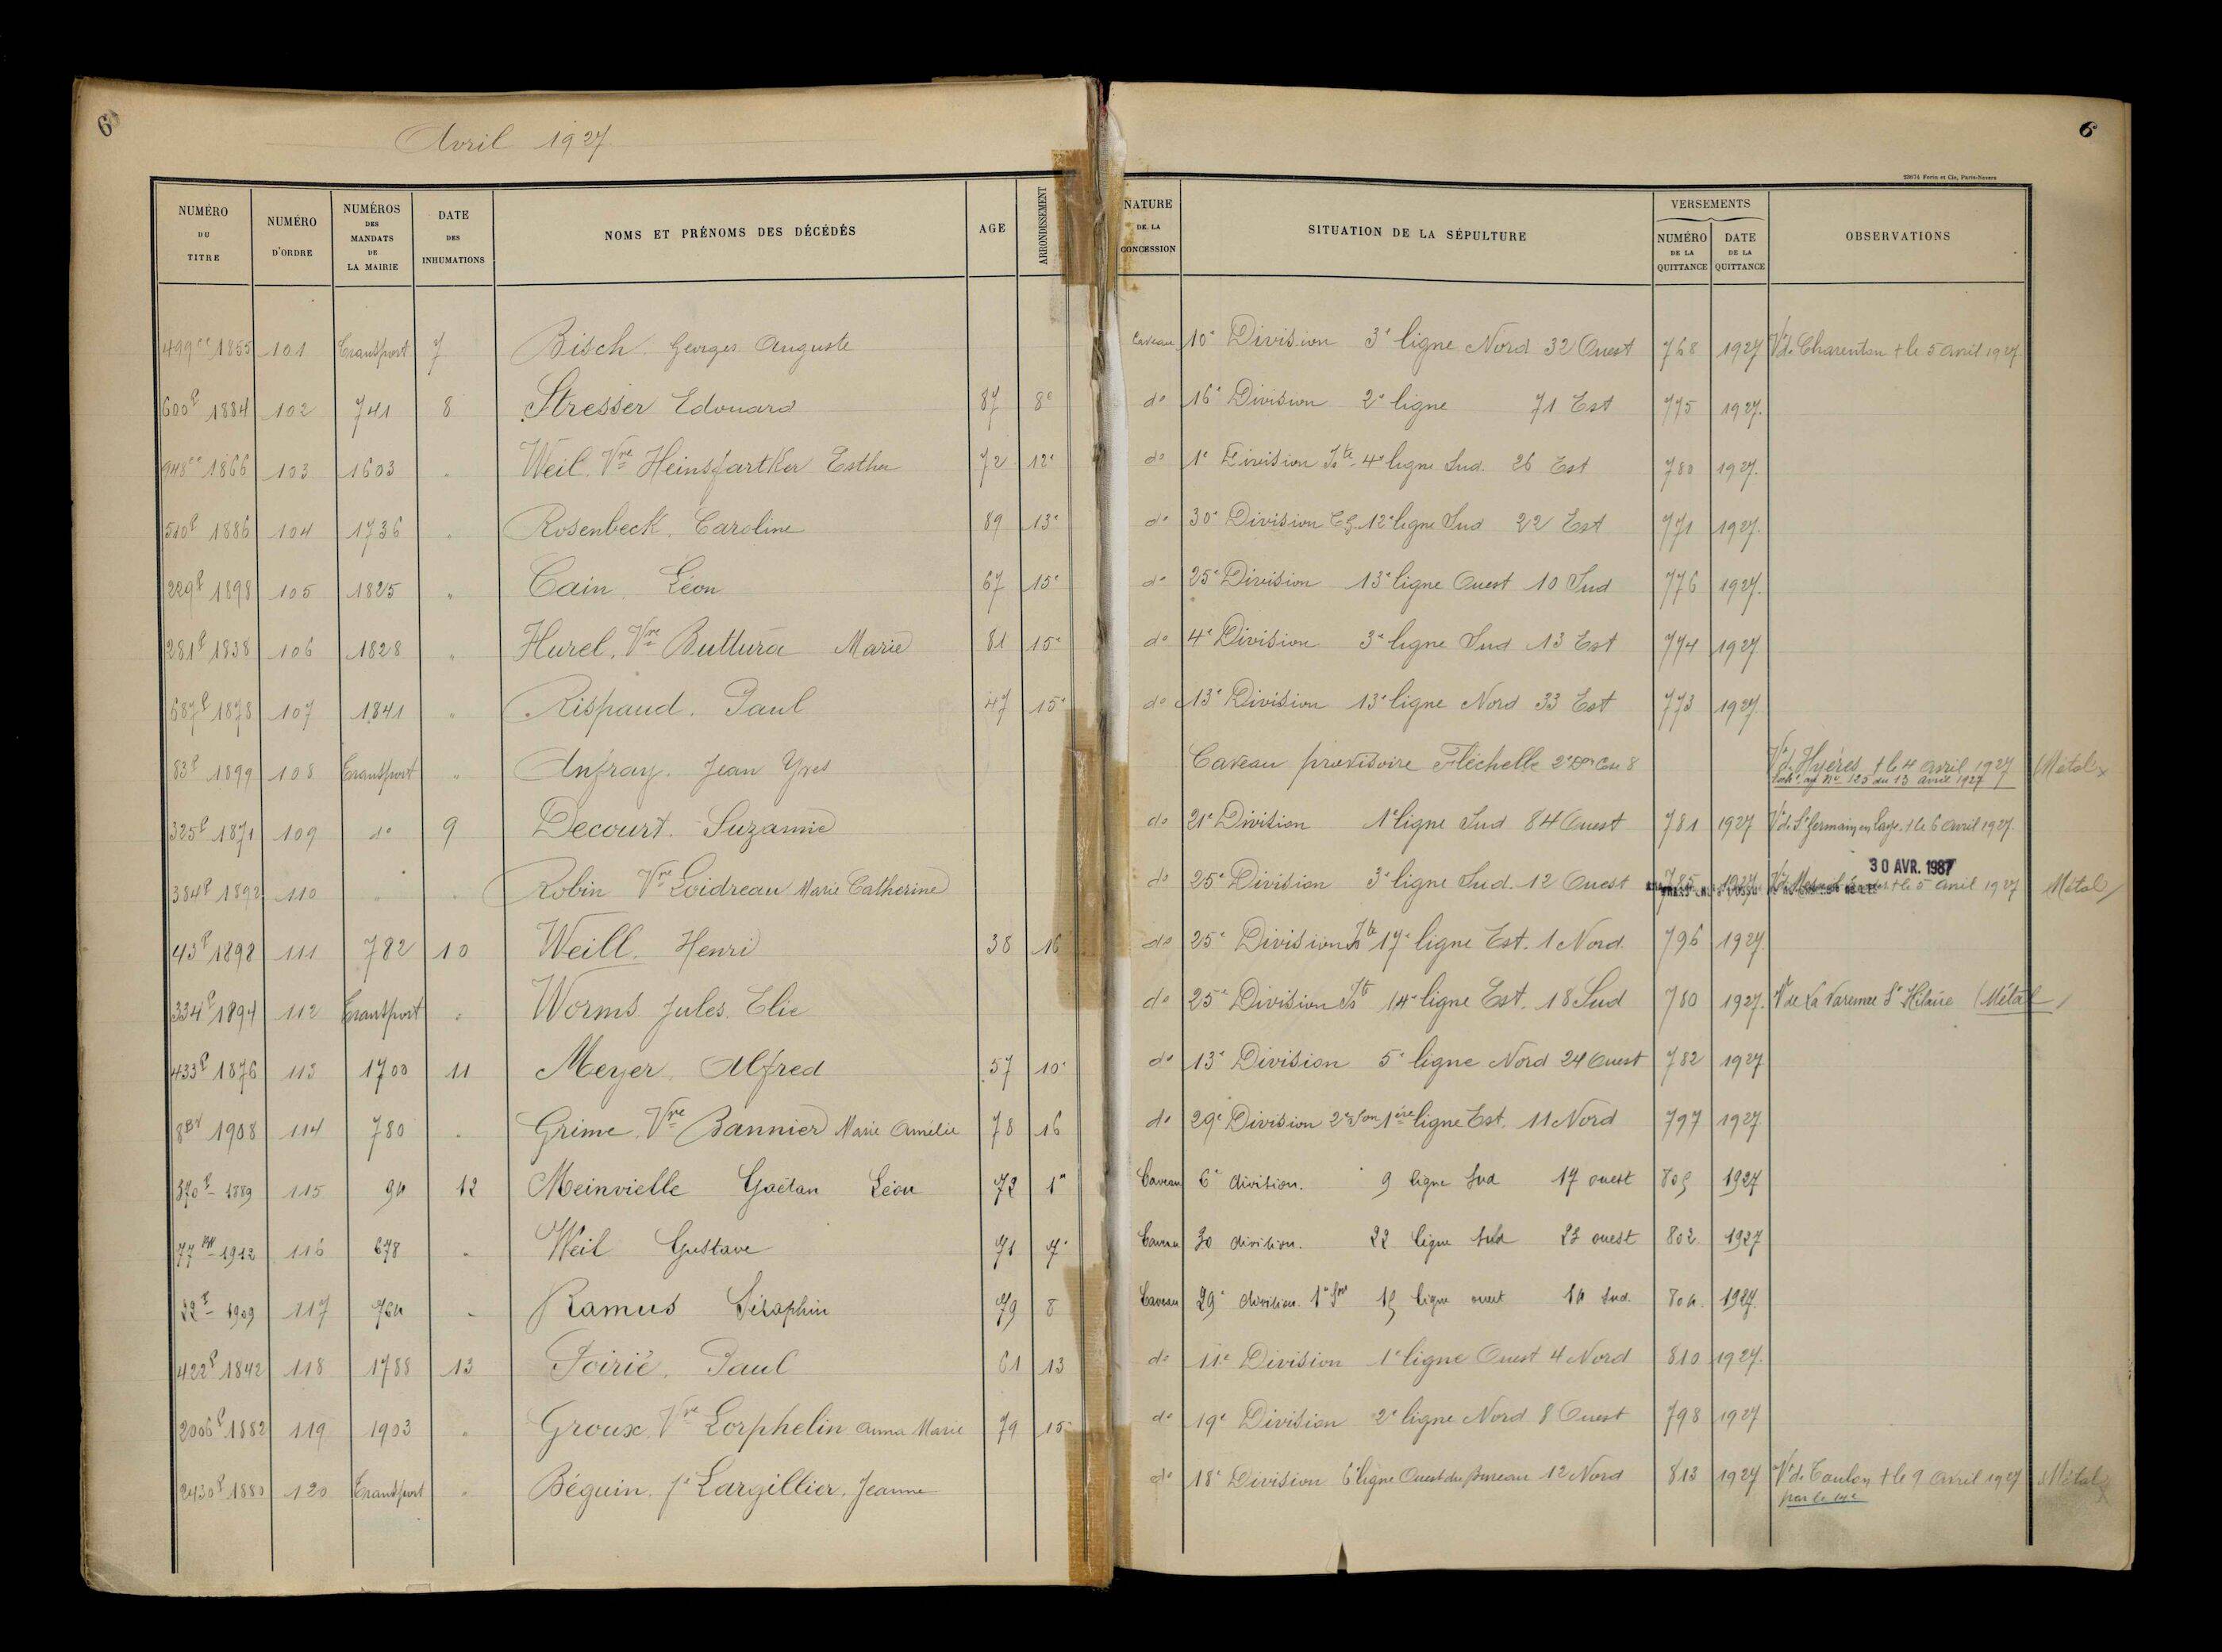 6
Avril 1927.
6
22674 Forin et Cie, Paris-Nevers
NUMÉRO DU TITRE | NUMÉRO D'ORDRE | NUMÉROS DES MANDATS DE LA MAIRIE | DATE DES INHUMATIONS | NOMS ET PRÉNOMS DES DÉCÉDÉS | AGE | ARRONDISSEMENT | NATURE DE LA CONCESSION | SITUATION DE LA SÉPULTURE | VERSEMENTS | NUMÉRO DE LA QUITTANCE | DATE DE LA QUITTANCE | OBSERVATIONS
499 cc 1855 101 Transport 7 Bisch. Georges Auguste Caveau 10e Division 3e ligne Nord 32 Ouest 768 1927 Vt de Charenton + le 5 avril 1927.
600 P 1884 102 741 8 Stresser Edouard 87 8e do 16e Division 2e ligne 71 Est 775 1927.
948 cc 1866 103 1603 " Weil. Vve Heinsfartker Esther 72 12e do 1e Division Ite 4e ligne Sud. 26 Est 780 1927.
510 P 1886 104 1736 " Rosenbeck. Caroline 89 13e do 30e Division 12e ligne Sud 22 Est 771 1927.
229 P 1898 105 1825 " Cain. Léon 67 15e do 25e Division 13e ligne Ouest 10 Sud 776 1927.
281 P 1838 106 1828 " Hurel. Vve Buttura Marie 81 15e do 4e Division 3e ligne Sud 13 Est 774 1927
687 P 1878 107 1841 " Rispaud. Paul 47 15e do 13e Division 13e ligne Nord 33 Est 773 1927
83 P 1899 108 Transport " Anfray. Jean Yves Caveau provisoire Fléchelle 2e Don Case 8 Vt d'Hyères + le 4 avril 1927 (Métal)
No 125 du 13 avril 1927
325 P 1871 109 do 9 Decourt. Suzanne do 21e Division 1e ligne Sud 84 Ouest 781 1927 Vt de St Germain en Laye. + le 6 avril 1927.
30 AVR. 1987
384 P 1892 110 " " Robin Vve Loidreau Marie Catherine do 25e Division 3e ligne Sud. 12 Ouest 785 1927 + le 5 avril 1927 Métal
43 P 1898 111 782 10 Weill. Henri 38 16 do 25e Division Ite 17e ligne Est. 1 Nord. 796 1927
334 P 1894 112 Transport " Worms Jules. Elie do 25e Division Ite 14e ligne Est. 18 Sud 780 1927. Vt de La Varenne St Hilaire (Métal)
433 P 1876 113 1700 11 Meyer. Alfred 57 10e do 13e Division 5e ligne Nord 24 Ouest 782 1927
8 1908 114 780 " Grime. Vve Bannier Marie Amélie 78 16 do 29e Division 2e Son 1ère ligne Est. 11 Nord 797 1927
370 P 1889 115 94 12 Meinvielle Gaëtan Léon 72 1er Caveau 6e division. 9 ligne Sud 17 ouest 805 1927
77 1912 116 678 " Weil Gustave 71 7e Caveau 30 division. 22 ligne Sud 23 ouest 802 1927
22 P 1909 117 764 " Ramus Séraphin 79 8 Caveau 29e division. 1e Son 15 ligne ouest 14 Sud. 804. 1927.
422 P 1842 118 1788 13 Poirié. Paul 61 13 do 11e Division 1e ligne Ouest 4 Nord 810 1927.
2006 P 1882 119 1903 " Groux. Vve Lorphelin Anna Marie 79 15 do 19e Division 2e ligne Nord 8 Ouest 798 1927
2430 P 1880 120 Transport " Béguin. fe Largillier. Jeanne do 18e Division 6e ligne Ouest du Bureau 12 Nord 813 1927 Vt de Toulon + le 9 avril 1927 (Métal)